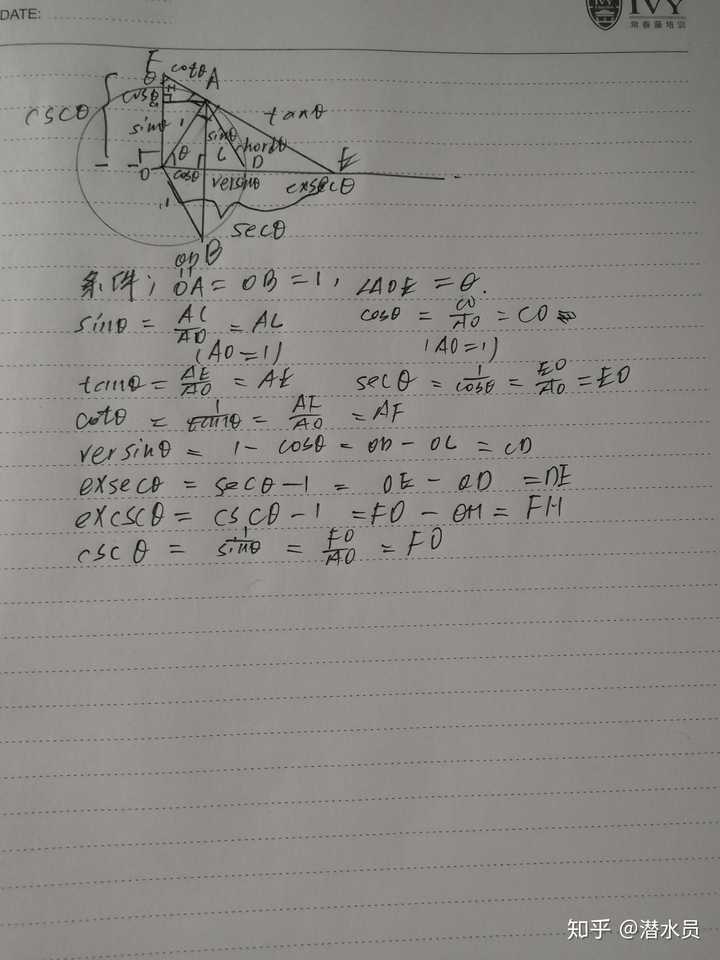 DATE:
IVY
常春藤培训
F
cotθ
A
cscθ
cosθ
tanθ
sinθ
1
sinθ
chordθ
θ
C
D
E
O
cosθ
versinθ
exsecθ
1
secθ
B
条件; OA = OB = 1, ∠AOE = θ.
sinθ = AC/AO = AC cosθ = CO/AO = CO
(AO=1) (AO=1)
tanθ = AE/AO = AE secθ = 1/cosθ = EO/AO = EO
cotθ = 1/tanθ = AF/AO = AF
versinθ = 1 - cosθ = OD - OC = CD
exsecθ = secθ - 1 = OE - OD = DE
excscθ = cscθ - 1 = FO - OH = FH
cscθ = 1/sinθ = FO/AO = FO
知乎 @潜水员